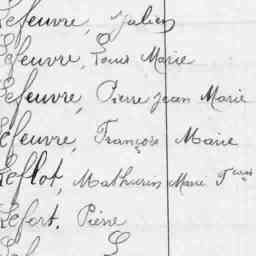 Lefeuvre, Julien
Lefeuvre, Louis Marie
Lefeuvre, Pierre Jean Marie
Lefeuvre, François Marie
Leflot, Mathurin Marie
Lefort, Pierre